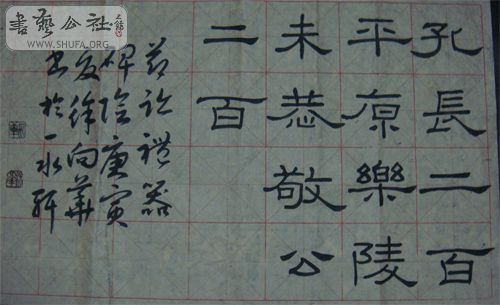 孔長二百
平原樂陵
朱恭敬公
二百
節臨禮器
碑陰庚寅
夏徐向華
書於一水軒
書藝公社
WWW.SHUFA.ORG